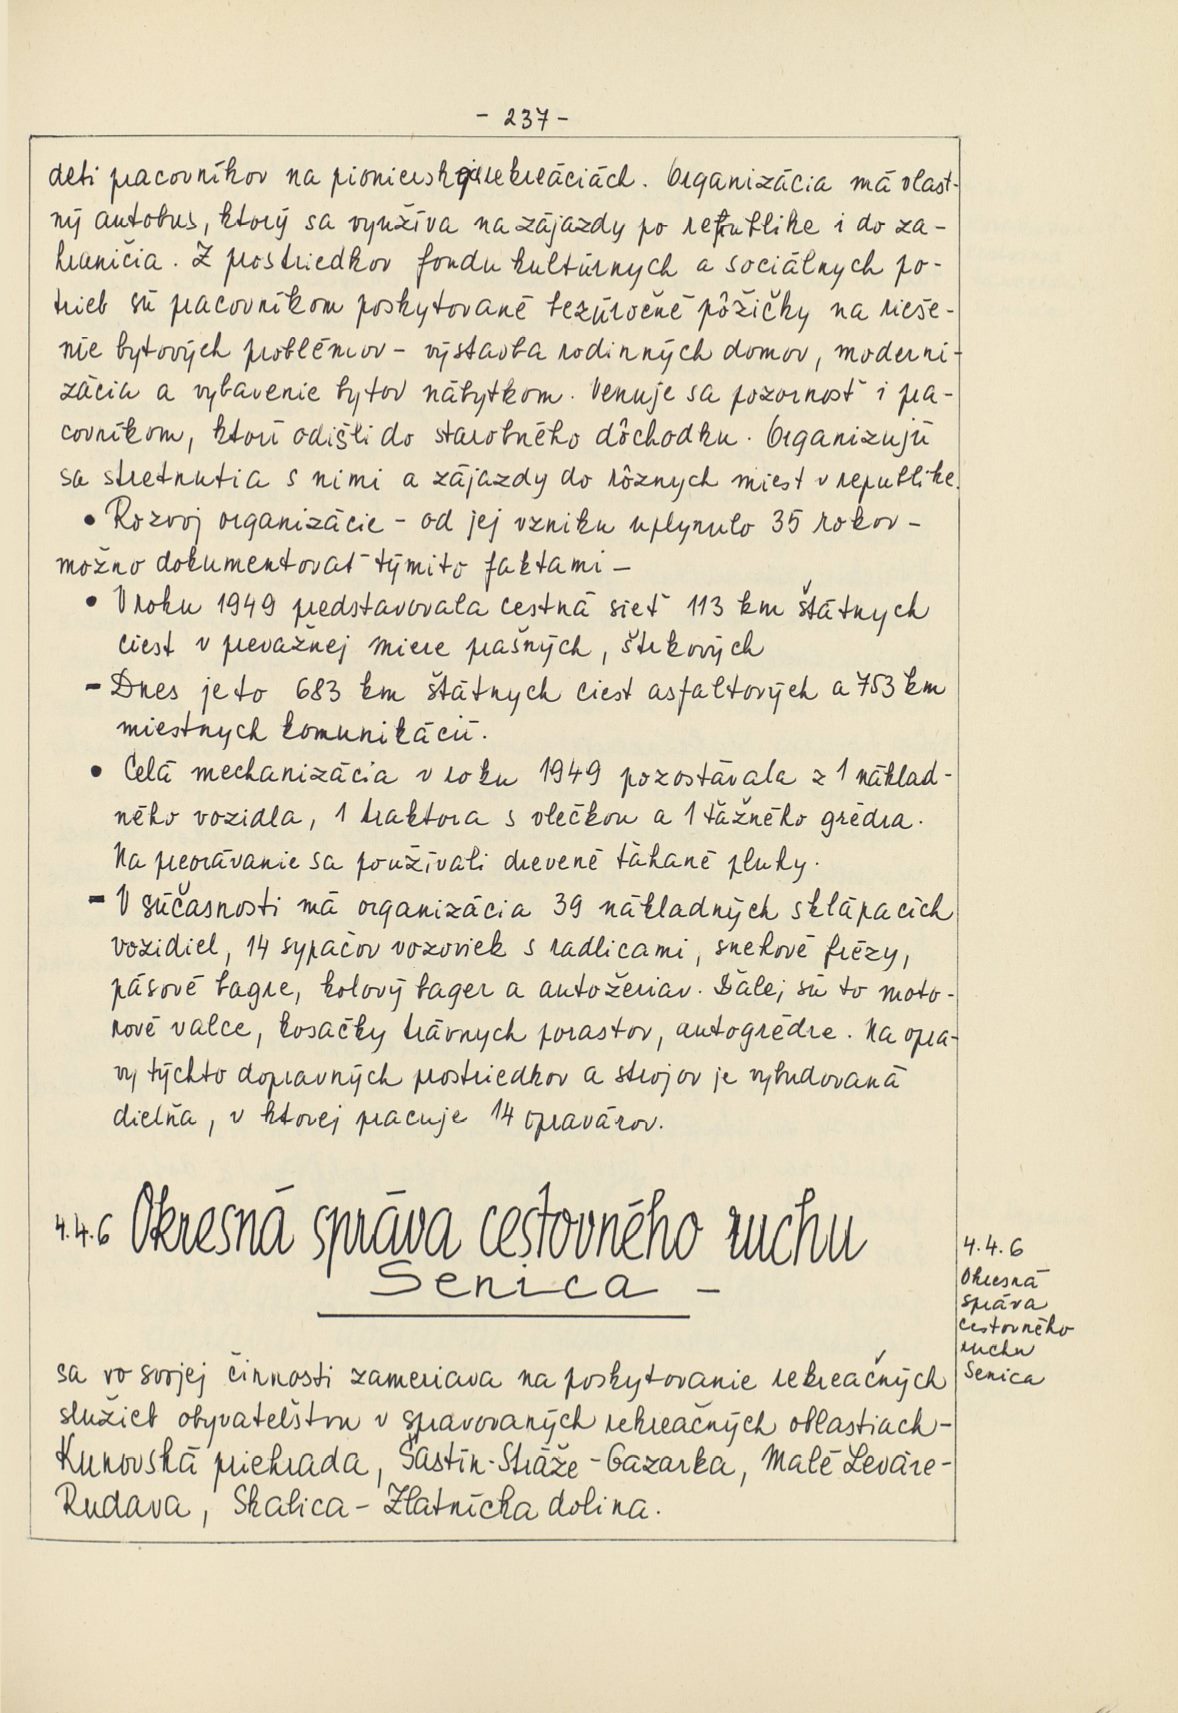 - 237 -
deti pracovníkov na pionierskej rekreáciách. Organizácia má vlast-
ný autobus, ktorý sa využíva na zájazdy po republike i do za-
hraničia. Z prostriedkov fondu kultúrnych a sociálnych po-
trieb sú pracovníkom poskytované bezúročné pôžičky na rieše-
nie bytových problémov - výstavba rodinných domov, moderni-
zácia a vybavenie bytov nábytkom. Venuje sa pozornosť i pra-
covníkom, ktorí odišli do starobného dôchodku. Organizujú
sa stretnutia s nimi a zájazdy do rôznych miest v republike.
• Rozvoj organizácie - od jej vzniku uplynulo 35 rokov -
možno dokumentovať týmito faktami -
• V roku 1949 predstavovala cestná sieť 113 km štátnych
ciest v prevažnej miere prašných, štrkových
- Dnes je to 683 km štátnych ciest asfaltových a 753 km
miestnych komunikácií.
• Celá mechanizácia v roku 1949 pozostávala z 1 náklad-
ného vozidla, 1 traktora s vlečkou a 1 ťažného grédra.
Na preorávanie sa používali drevené ťahané pluhy.
- V súčasnosti má organizácia 39 nákladných sklápacích
vozidiel, 14 sypačov vozoviek s radlicami, snehové frézy,
pásové bagre, kolový bager a autožeriav. Ďalej sú to moto-
rové valce, kosačky trávnych porastov, autogrédre. Na opra-
vy týchto dopravných prostriedkov a strojov je vybudovaná
dielňa, v ktorej pracuje 14 opravárov.
4.4.6 Okresná správa cestovného ruchu
Senica -
4.4.6
Okresná
správa
cestovného
ruchu
Senica
sa vo svojej činnosti zameriava na poskytovanie rekreačných
služieb obyvateľstvu v spravovaných rekreačných oblastiach -
Kunovská priehrada, Šaštín-Stráže - Gazarka, Malé Leváre -
Rudava, Skalica - Zlatnícka dolina.